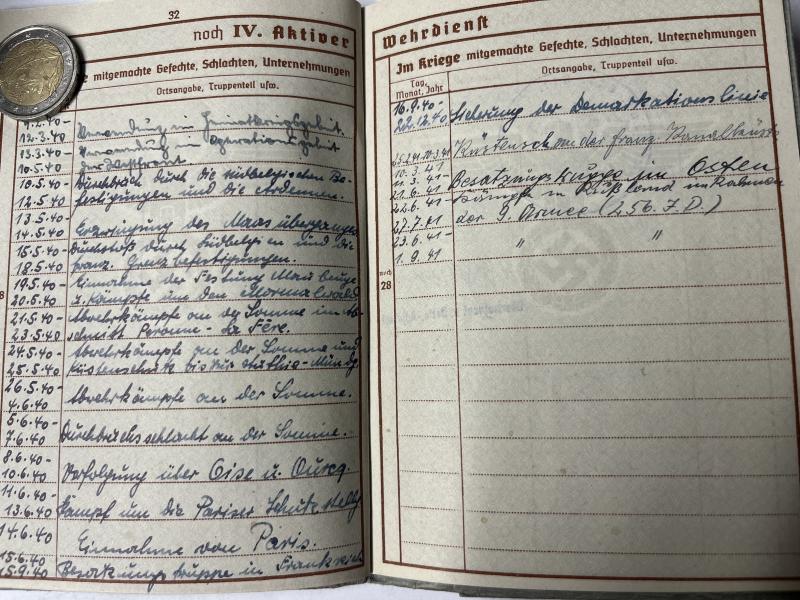 32
noch IV. Aktiver
mitgemachte Gefechte, Schlachten, Unternehmungen
Ortsangabe, Truppenteil usw.
.2.40- Verwendung im Heimatkriegsgebiet.
12.3.40
13.3.40 Verwendung im Operationsgebiet
10.5.40 der Westfront
10.5.40- Durchbruch durch die südbelgischen Be-
12.5.40 festigungen und die Ardennen.
13.5.40-
14.5.40 Erzwingung des Maasüberganges
15.5.40- Durchstoß durch Südbelgien und die
18.5.40 franz. Grenzbefestigungen.
19.5.40- Einnahme der Festung Maubeuge
20.5.40 u. Kämpfe um den Mormalwald
21.5.40- Abwehrkämpfe an der Somme im Ab-
23.5.40 schnitt Peronne - La Fère.
24.5.40- Abwehrkämpfe an der Somme und
25.5.40 Küstenschutz bis zur Authie-Mündg.
26.5.40- Abwehrkämpfe an der Somme.
4.6.40
5.6.40- Durchbruchsschlacht an der Somme.
7.6.40
8.6.40-
10.6.40 Verfolgung über Oise u. Ourcq.
11.6.40-
13.6.40 Kampf um die Pariser Schutzstellg
14.6.40 Einnahme von Paris.
15.6.40
15.9.40 Besatzungstruppe in Frankreich
Wehrdienst
Im Kriege mitgemachte Gefechte, Schlachten, Unternehmungen
Tag, Monat, Jahr
Ortsangabe, Truppenteil usw.
16.9.40- Sicherung der Demarkationslinie
22.12.40
Küstenschutz an der franz. Kanalküste
10.3.41
11.3.41- Besatzungstruppe im Osten
21.6.41
22.6.41- Kämpfe in Rußland im Rahmen
27.7.41 der 9. Armee (256. J.D.)
23.6.41- " "
1.9.41
noch
28